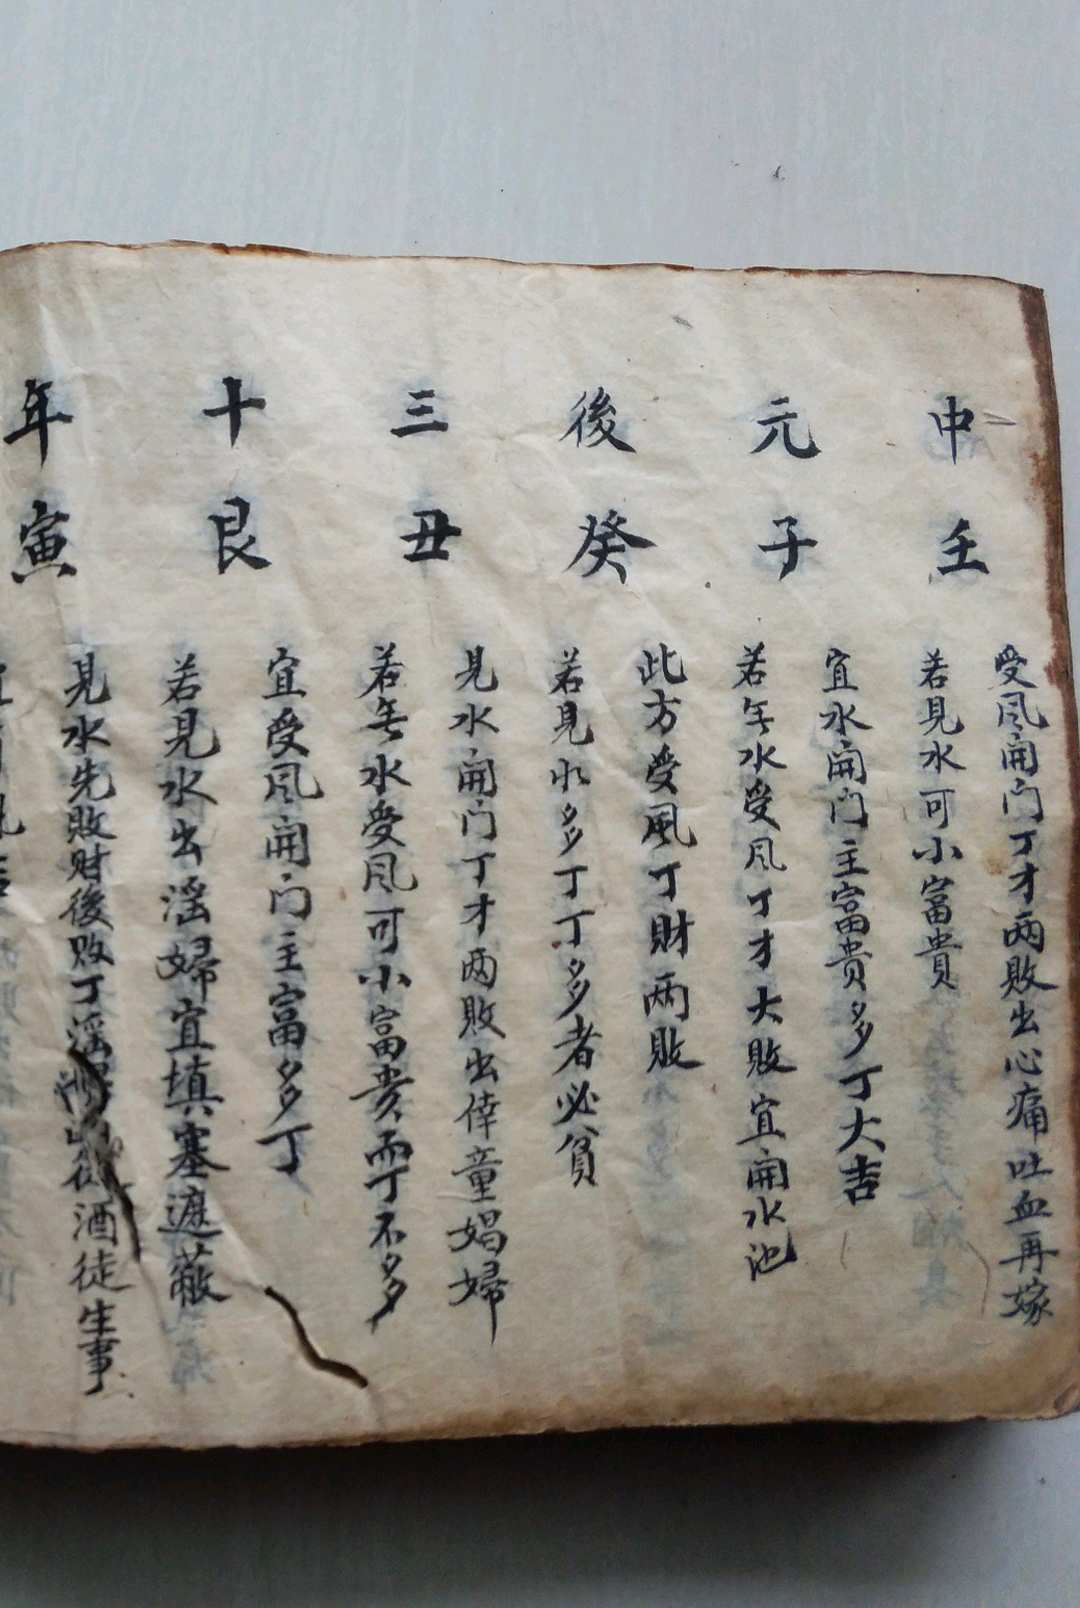 中元後三十年
壬
受风開门丁才两敗出心痛吐血再嫁
若見水可小富貴
子
宜水開门主富貴多丁大吉
若無水受风丁才大敗宜開水池
癸
此方受風丁財两敗
若見水多丁丁多者必貧
丑
見水開门丁才两敗出倖童娼婦
若無水受风可小富貴而丁不多
艮
宜受风開门主富多丁
若見水出淫婦宜填塞遮蔽
寅
見水先敗财後敗丁淫 酒徒生事